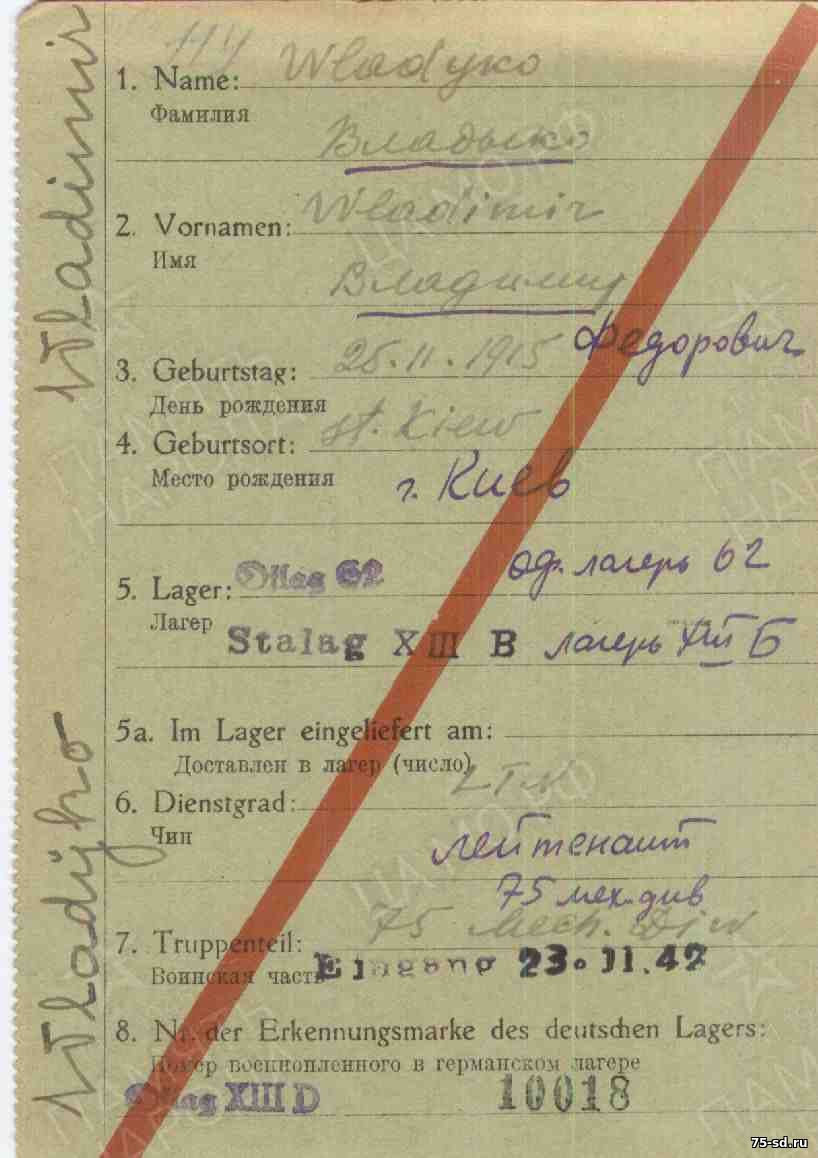 Wladimir
Wladyko
114
1. Name: Wladyko
Фамилия
Владыко
2. Vornamen: Wladimir
Имя
Владимир
Федорович
3. Geburtstag: 25.11.1915
День рождения
4. Geburtsort: st. Kiew
Место рождения г. Киев
5. Lager: Oflag 62 оф. лагерь 62
Лагер
Stalag XIII B лагерь XIII Б
5a. Im Lager eingeliefert am:
Доставлен в лагер (число)
6. Dienstgrad: LTN
Чин
лейтенант
75 мех. див
7. Truppenteil: 75 Mech. Div
Воинская часть Eingang 23.11.42
8. Nr. der Erkennungsmarke des deutschen Lagers:
Номер военнопленного в германском лагере
Oflag XIII D 10018
75-sd.ru